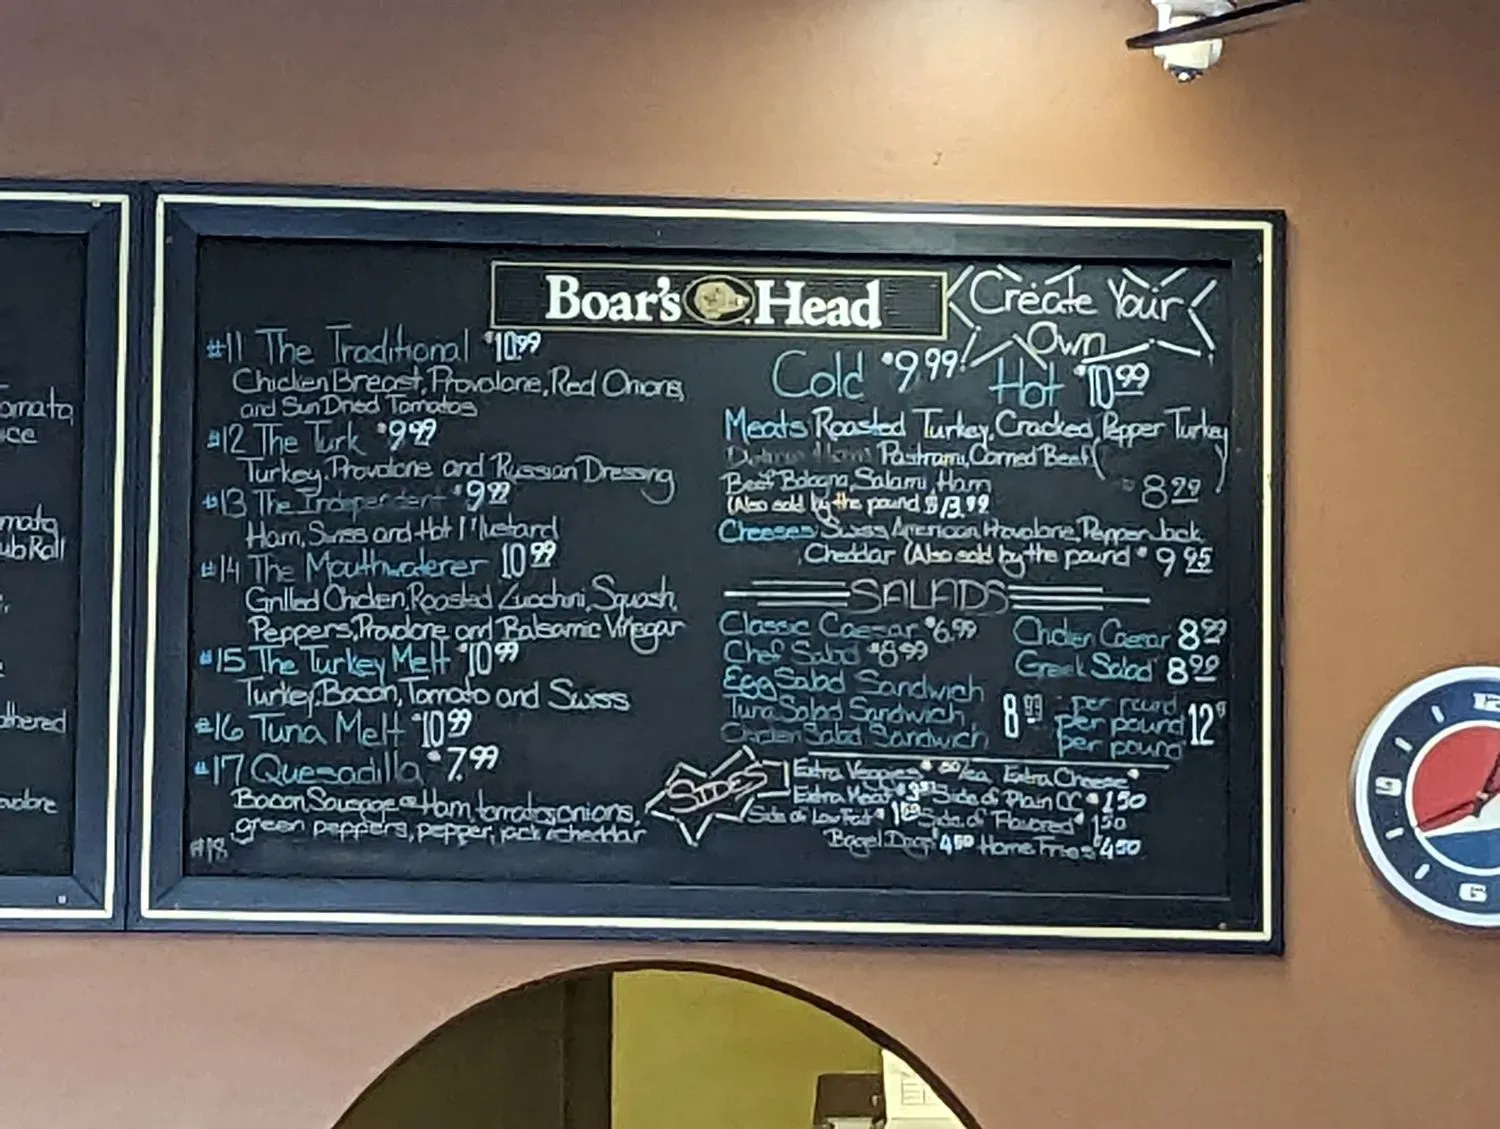 omato,
ice
mato,
ub Roll
athered
Boar's Head
#11 The Traditional $10.99
Chicken Breast, Provolone, Red Onions,
and Sun Dried Tomatos
#12 The Turk $9.99
Turkey, Provolone and Russian Dressing
#13 The Independent $9.99
Ham, Swiss and Hot Mustard
#14 The Mouthwaterer 10.99
Grilled Chicken, Roasted Zucchini, Squash,
Peppers, Provolone and Balsamic Vinegar
#15 The Turkey Melt $10.99
Turkey, Bacon, Tomato and Swiss
#16 Tuna Melt $10.99
#17 Quesadilla $7.99
Bacon Sausage or Ham, tomatos, onions,
green peppers, pepper jack & cheddar
#18
Create Your
Own
Cold $9.99 Hot $10.99
Meats Roasted Turkey, Cracked Pepper Turkey
Ham Pastrami, Corned Beef
Beef Bologna, Salami, Ham 8.29
(Also sold by the pound $13.99
Cheeses Swiss, American, Provolone, Pepper Jack
Cheddar (Also sold by the pound $9.95
SALADS
Classic Caesar $6.99 Chicken Caesar 8.99
Chef Salad $8.99 Greek Salad 8.99
Egg Salad Sandwich per pound
Tuna Salad Sandwich 8.99 per pound 12
Chicken Salad Sandwich per pound
SIDES
Extra Veggies .50/ea Extra Cheese
Extra Meat Side of Plain CC $1.50
Side of Low Fat Side of Flavored 1.50
Bagel Dog $4.50 Home Fries $4.50
12
9
6